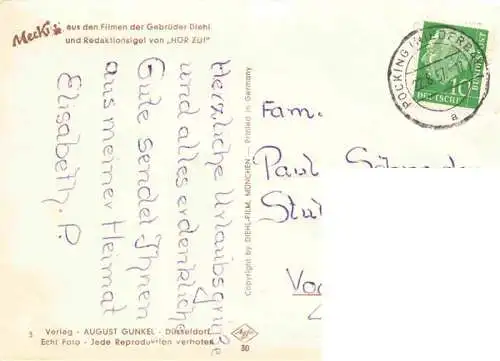 Mecki aus den Filmen der Gebrüder Diehl
und Redaktionsigel von „HÖR ZU!"
Herzliche Urlaubsgrüße
und alles erdenklich
Gute sendet Ihnen
aus meiner Heimat
Elisabeth. P.
Copyright by DIEHL-FILM, MÜNCHEN — Printed in Germany
POCKING (NIEDERBAY
a
10
DEUTSCHE
Fam.
Paul
Stu
3 Verlag - AUGUST GUNKEL - Düsseldorf
Echt Foto - Jede Reproduktion verboten
Agfa
30